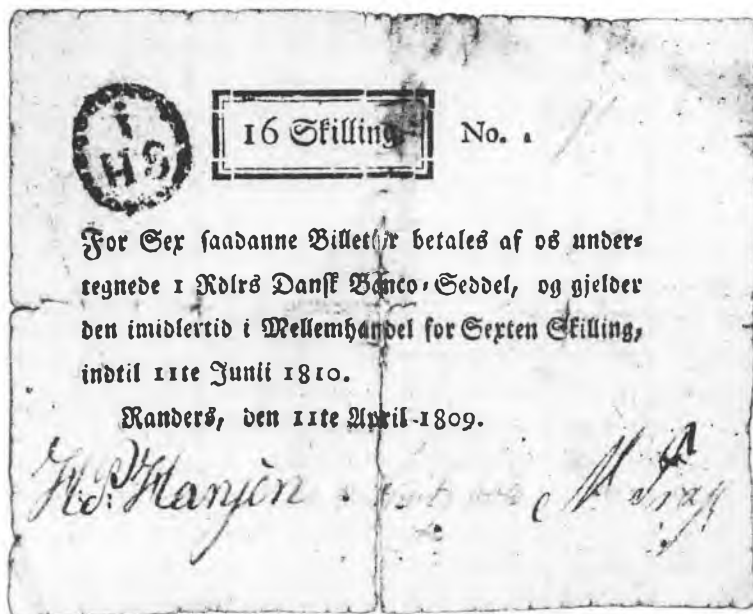 i
HS
16 Skilling
No. 1
For Sex saadanne Billetter betales af os under-
tegnede 1 Rdlrs Dansk Banco-Seddel, og gjelder
den imidlertid i Mellemhandel for Sexten Skilling,
indtil 11te Junii 1810.
Randers, den 11te April 1809.
H.P. Hansen